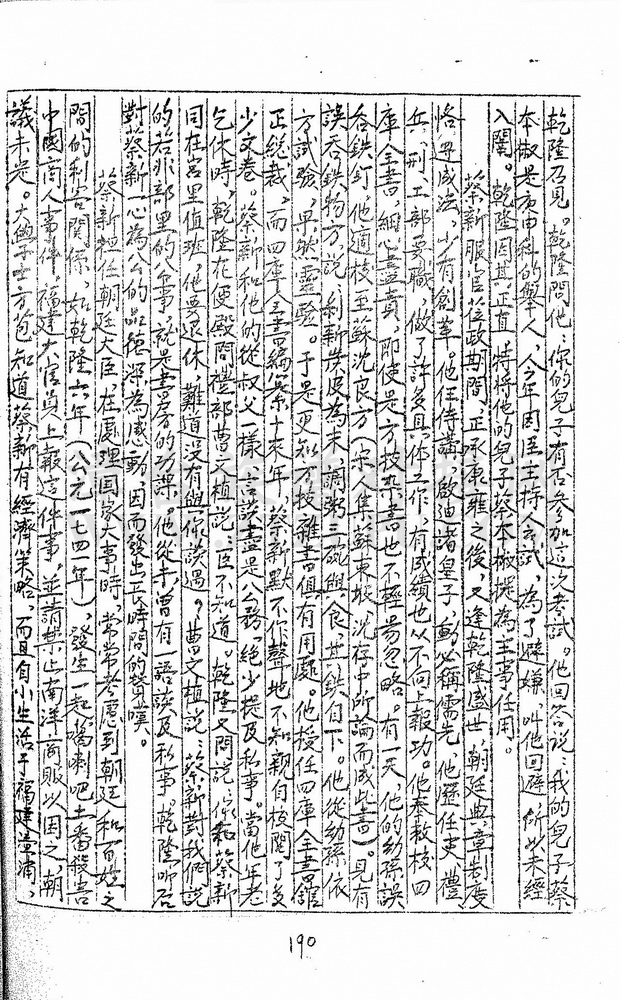 乾隆召見。乾隆問他：你的兒子有否參加這次考試。他回答說：我的兒子蔡
本俶是有由科的舉人，今年因臣主持会試，為了避嫌，叫他回避，所以未經
入闈。乾隆因其正直，特將他的兒子蔡本俶提為主事任用。
蔡新服官莅政期間，正承康雍之後，又逢乾隆盛世，朝廷典章制度
恪毋成法，少有創革。他任侍講，啟迪諸皇子，動必稱儒先，他歷任吏、禮、
兵、刑、工部要職，做了許多具体工作，有成績也从不向上報功。他奉敕校四
庫全書，細心盡責，即使是方技杂書也不輕易忽略。有一天，他的幼孫誤
吞鉄釘，他適校至蘇沈良方（宋人集蘇東坡、沈存中所論而成此書）。見有
誤吞鉄物方，說：剥新炭皮為末，調粥三碗與食，其鉄自下。他從幼孫依
方試驗，果然靈驗。于是更知方技雜書俱有用處。他授任四庫全書館
正總裁，而四庫全書編纂十來年，蔡新默不作聲地不知親自校閱了多
少文卷。蔡新和他的從叔父一樣，言談盡是公務，絕少提及私事。當他年老
乞休時，乾隆在便殿問禮部曹文植說：臣不知道。乾隆又問說：你和蔡新
同在宮里值班，他要退休，難道沒有與你談過。曹文植說：蔡新對我們說
的若非部里的公事，就是書房的功課。他從未曾有一語談及私事。乾隆听后
對蔡新一心為公的品德深為感動，因而發出長時間的贊嘆。
蔡新初任朝廷大臣，在處理国家大事時，常常考慮到朝廷和百姓之
間的利害關係，如乾隆六年（公元一七四一年），發生一起噶喇吧土番殺害
中國商人事件。福建大官員上報這件事，並請禁止南洋商販以困之，朝
議未定。大學士方苞知道蔡新有經濟策略，而且自小生活于福建漳浦，
190